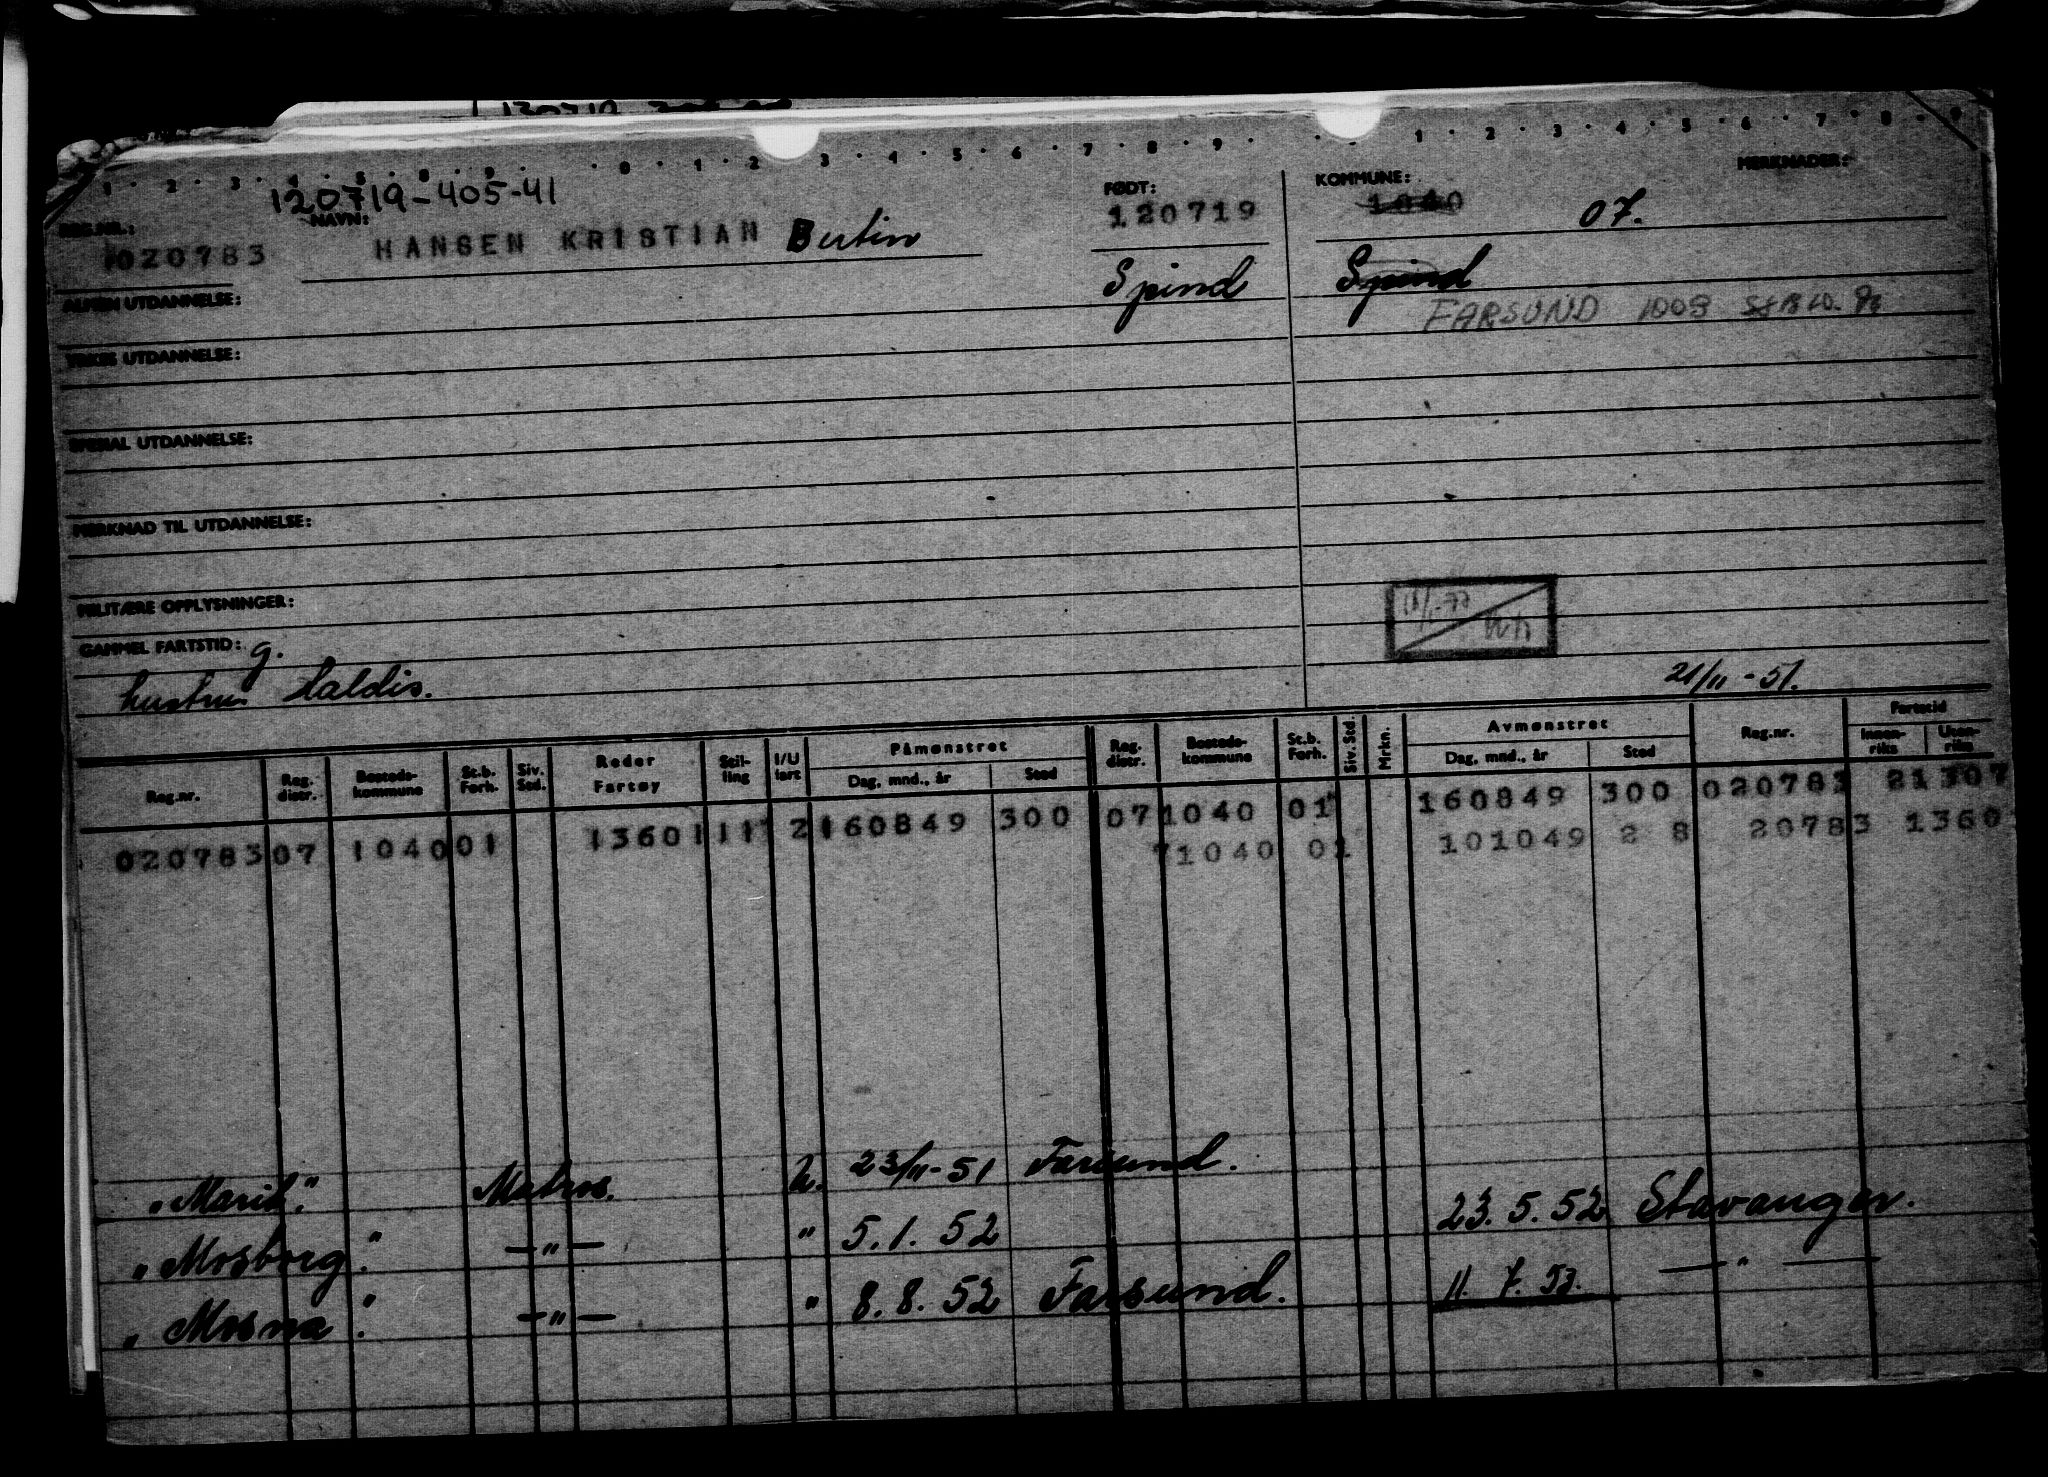 120719-405-41
REG.NR.:
NAVN:
FØDT:
KOMMUNE:
MERKNADER:
020783
HANSEN KRISTIAN Bertin
120719
1040
07.
Spind
Spind
FARSUND 1003
ALMEN UTDANNELSE:
YRKES UTDANNELSE:
SPESIAL UTDANNELSE:
MERKNAD TIL UTDANNELSE:
MILITÆRE OPPLYSNINGER:
GAMMEL FARTSTID:
g.
hustru Haldis.
21/11 - 51.
Reg.nr.
Reg. distr.
Bosteds-kommune
St.b. Forh.
Siv. Std.
Reder Fartøy
Stil-ling
I/U fart
Påmønstret
Dag, mnd., år
Sted
Reg. distr.
Bosteds-kommune
St.b. Forh.
Siv. Std.
Mrkn.
Avmønstret
Dag, mnd., år
Sted
Reg.nr.
Fartstid
Innen-riks
Uten-riks
020783 07 1040 01 13601 11 2 160849 300 07 1040 01 160849 300 020783 21307
71040 01 101049 2 8 20783 1360
"Marit." Matros. U. 23/11-51 Farsund.
"Mosborg." -"- " 5.1.52 23.5.52 Stavanger.
"Mosna." -"- " 8.8.52 Farsund. 11.7.53. -"-